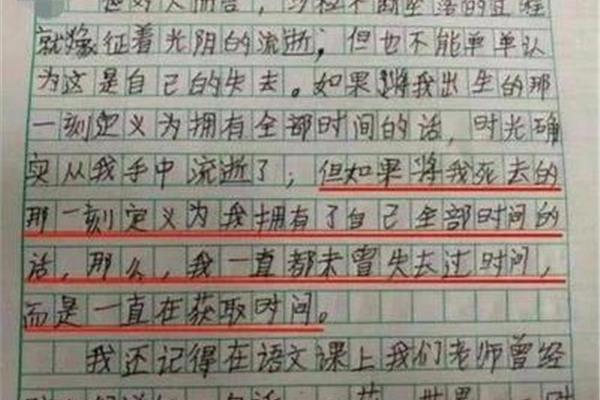 言，沙粒不断坠落的过程
就像征着光阴的流逝；但也不能单单认
为这是自己的失去。如果将我出生的那
一刻定义为拥有全部时间的话，时光确
实从我手中流逝了；但如果将我死去的
那一刻定义为我拥有了自己全部时间的
话，那么，我一直都未曾失去过时间，
而是一直在获取时间。
我还记得在语文课上我们老师曾经